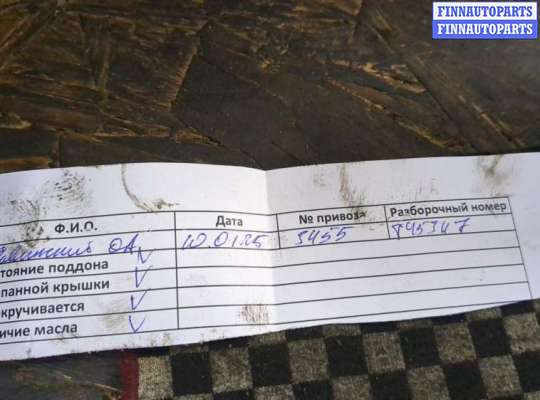 FINNAUTOPARTS
FINNAUTOPARTS
Ф.И.О. Дата № привоза Разборочный номер
ОА 10.01.25 5455 T45347
тояние поддона
панной крышки
окручивается
ичие масла